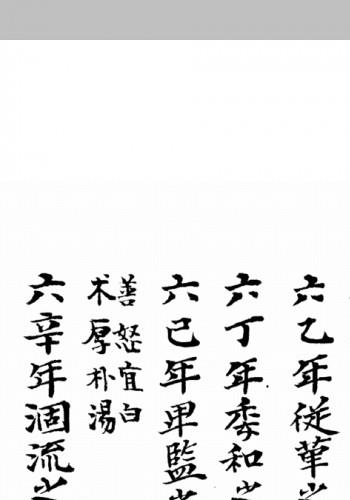 六乙年従華之
六丁年委和之
六己年卑監之
善怒宜白
朮厚朴湯
六辛年涸流之